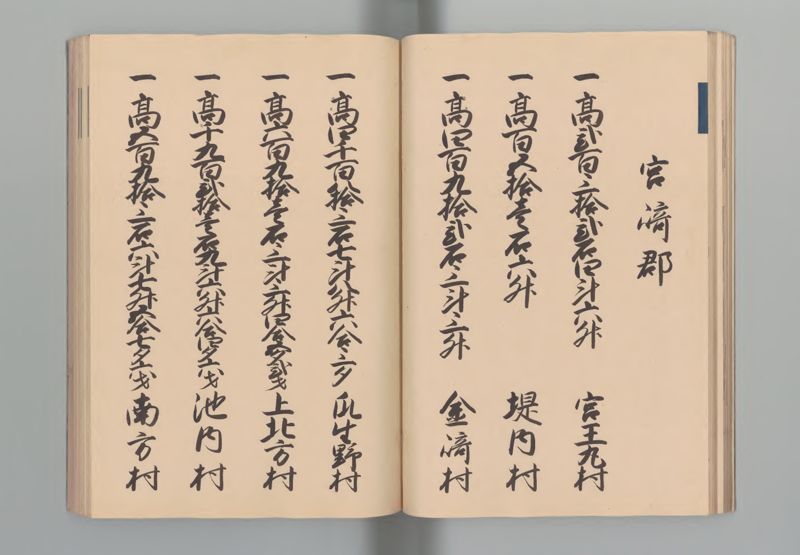 宮﨑郡
一 高弐百三拾弐石四斗六升 宮王丸村
一 高百五拾壱石六升 堤内村
一 高四百九拾弐石三斗三升 金﨑村
一 高四千百拾三石七斗八升六合三夕 瓜生野村
一 高六百九拾壱石三斗三升四合五夕弐才 上北方村
一 高千九百弐拾壱石九斗六升六合四夕六才 池内村
一 高五百九拾三石六斗七升八合七夕六才 南方村